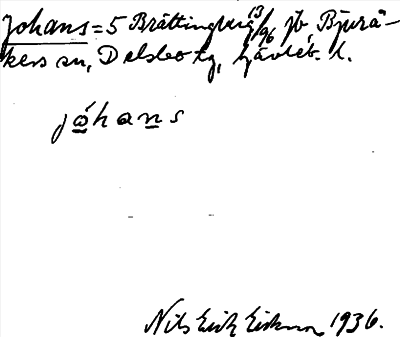 Johans = 5 Brättingberg 13/96 jb, Bjurå-
kers sn, Delsbo tg, Gävleb. l.
jó̲han̲s
Nils Erik Eriksson 1936.